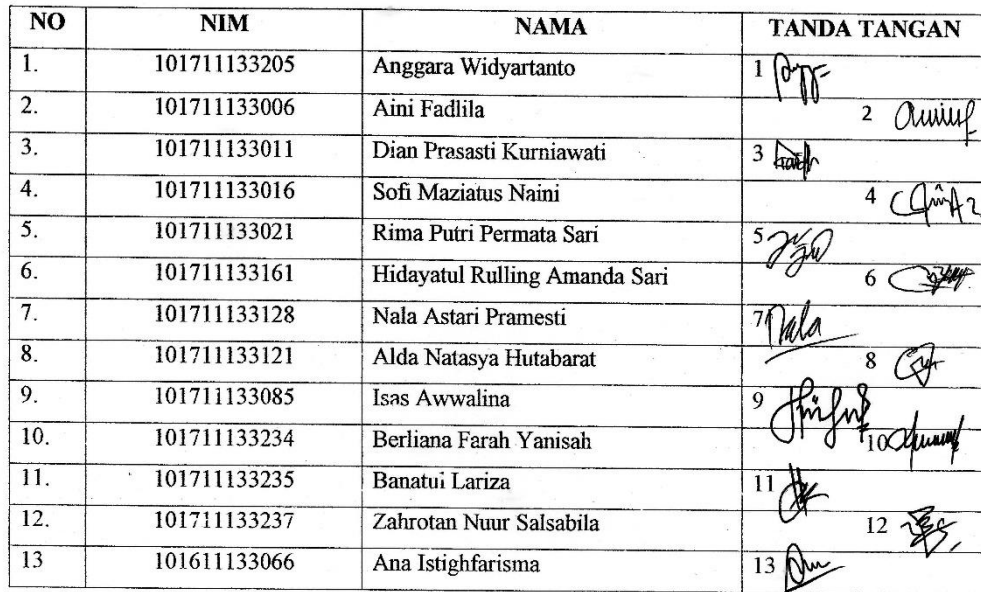 NO NIM NAMA TANDA TANGAN
1. 101711133205 Anggara Widyartanto 1
2. 101711133006 Aini Fadlila 2
3. 101711133011 Dian Prasasti Kurniawati 3
4. 101711133016 Sofi Maziatus Naini 4
5. 101711133021 Rima Putri Permata Sari 5
6. 101711133161 Hidayatul Rulling Amanda Sari 6
7. 101711133128 Nala Astari Pramesti 7 Nala
8. 101711133121 Alda Natasya Hutabarat 8
9. 101711133085 Isas Awwalina 9
10. 101711133234 Berliana Farah Yanisah 10
11. 101711133235 Banatui Lariza 11
12. 101711133237 Zahrotan Nuur Salsabila 12
13 101611133066 Ana Istighfarisma 13